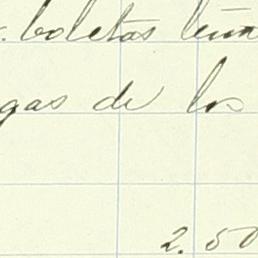 boletas
gas de los
2.50